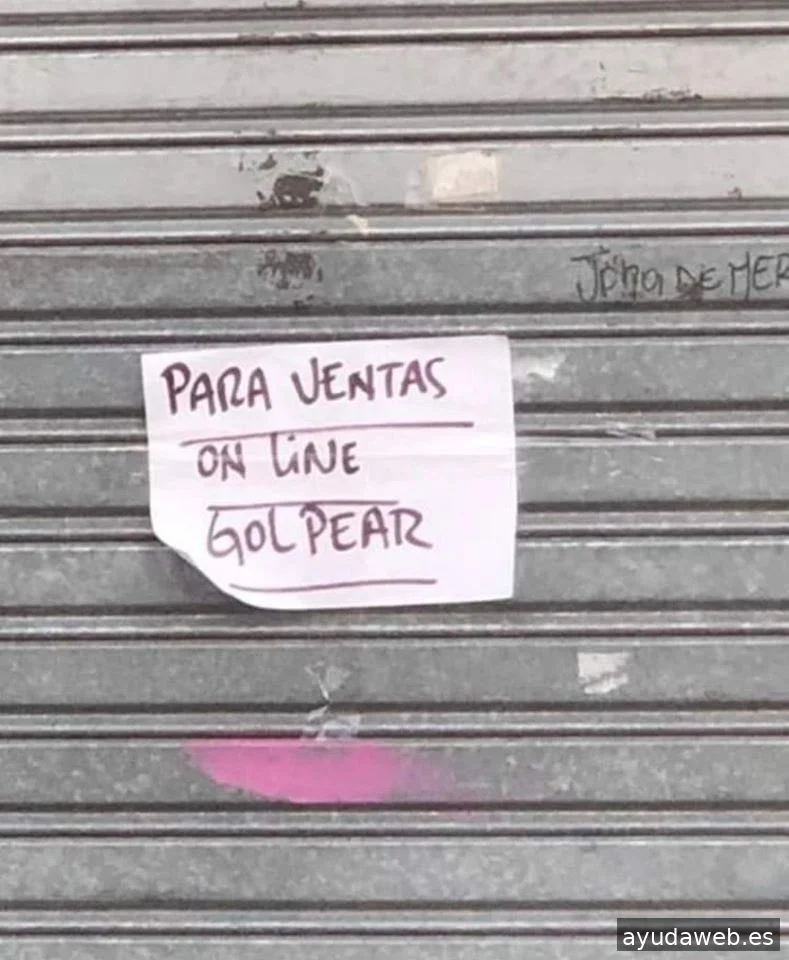 DE MER
PARA VENTAS
ON LINE
GOLPEAR
ayudaweb.es